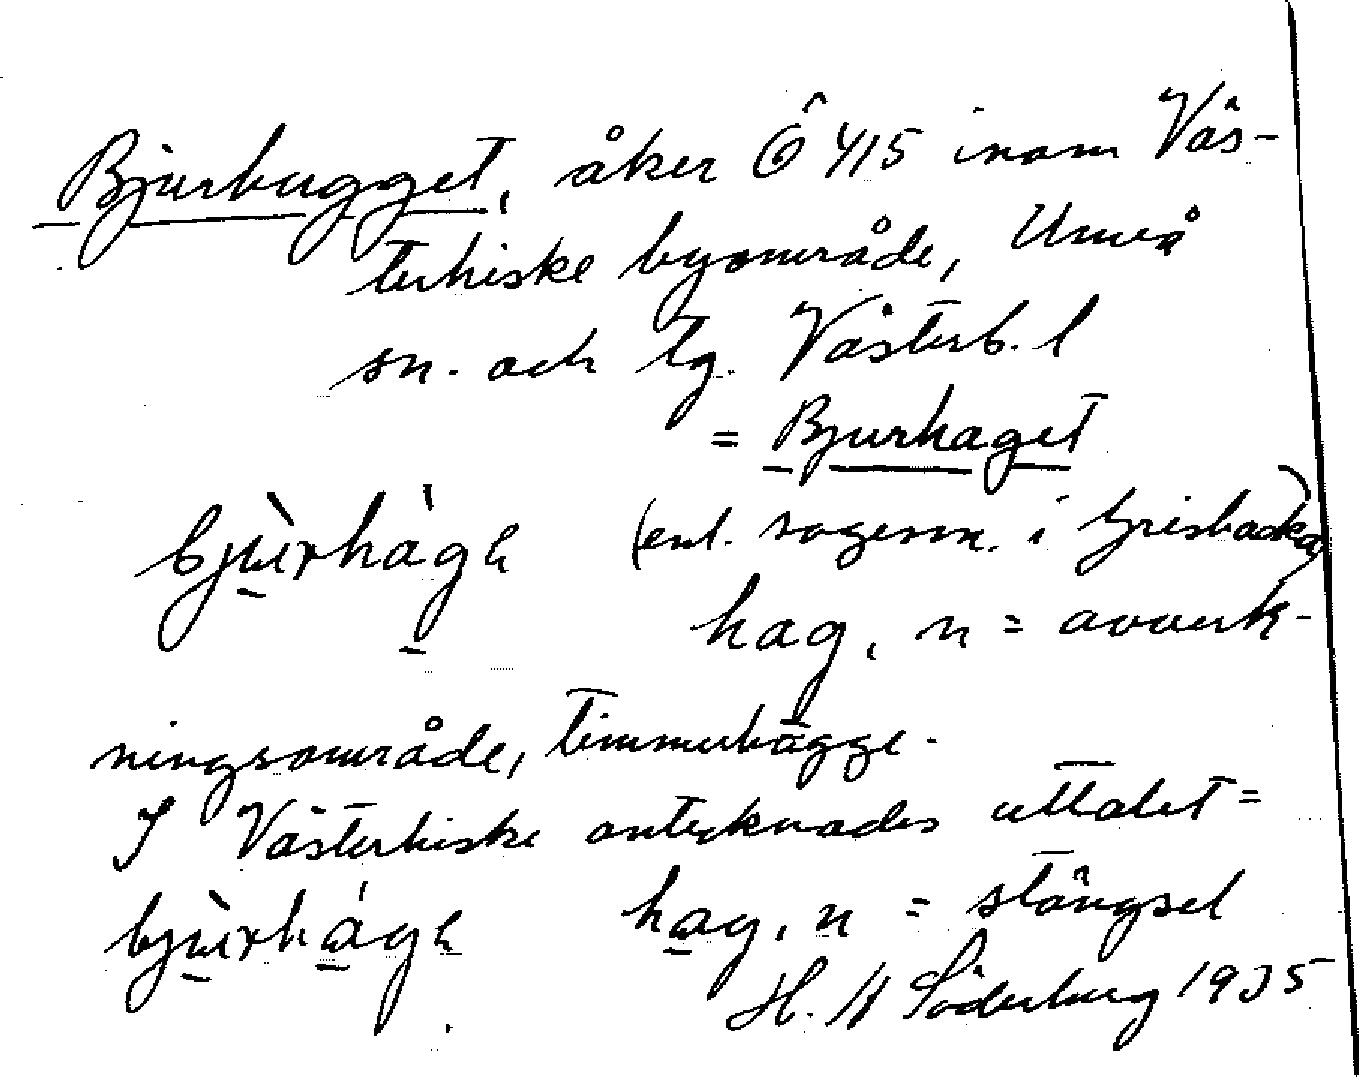 Bjurbugget, åker Ö 415 inom Väs-
terhiske byområde, Umeå
sn. och tg. Västerb. l
= Bjurhaget
bjùrhágε (enl. sagesm. i Grisbacka)
hag, n = avverk-
ningsområde, timmerhägge.
I Västerhiske antecknades uttalet =
bjùrhágε hag, n = stängsel
H. H Söderberg 1935